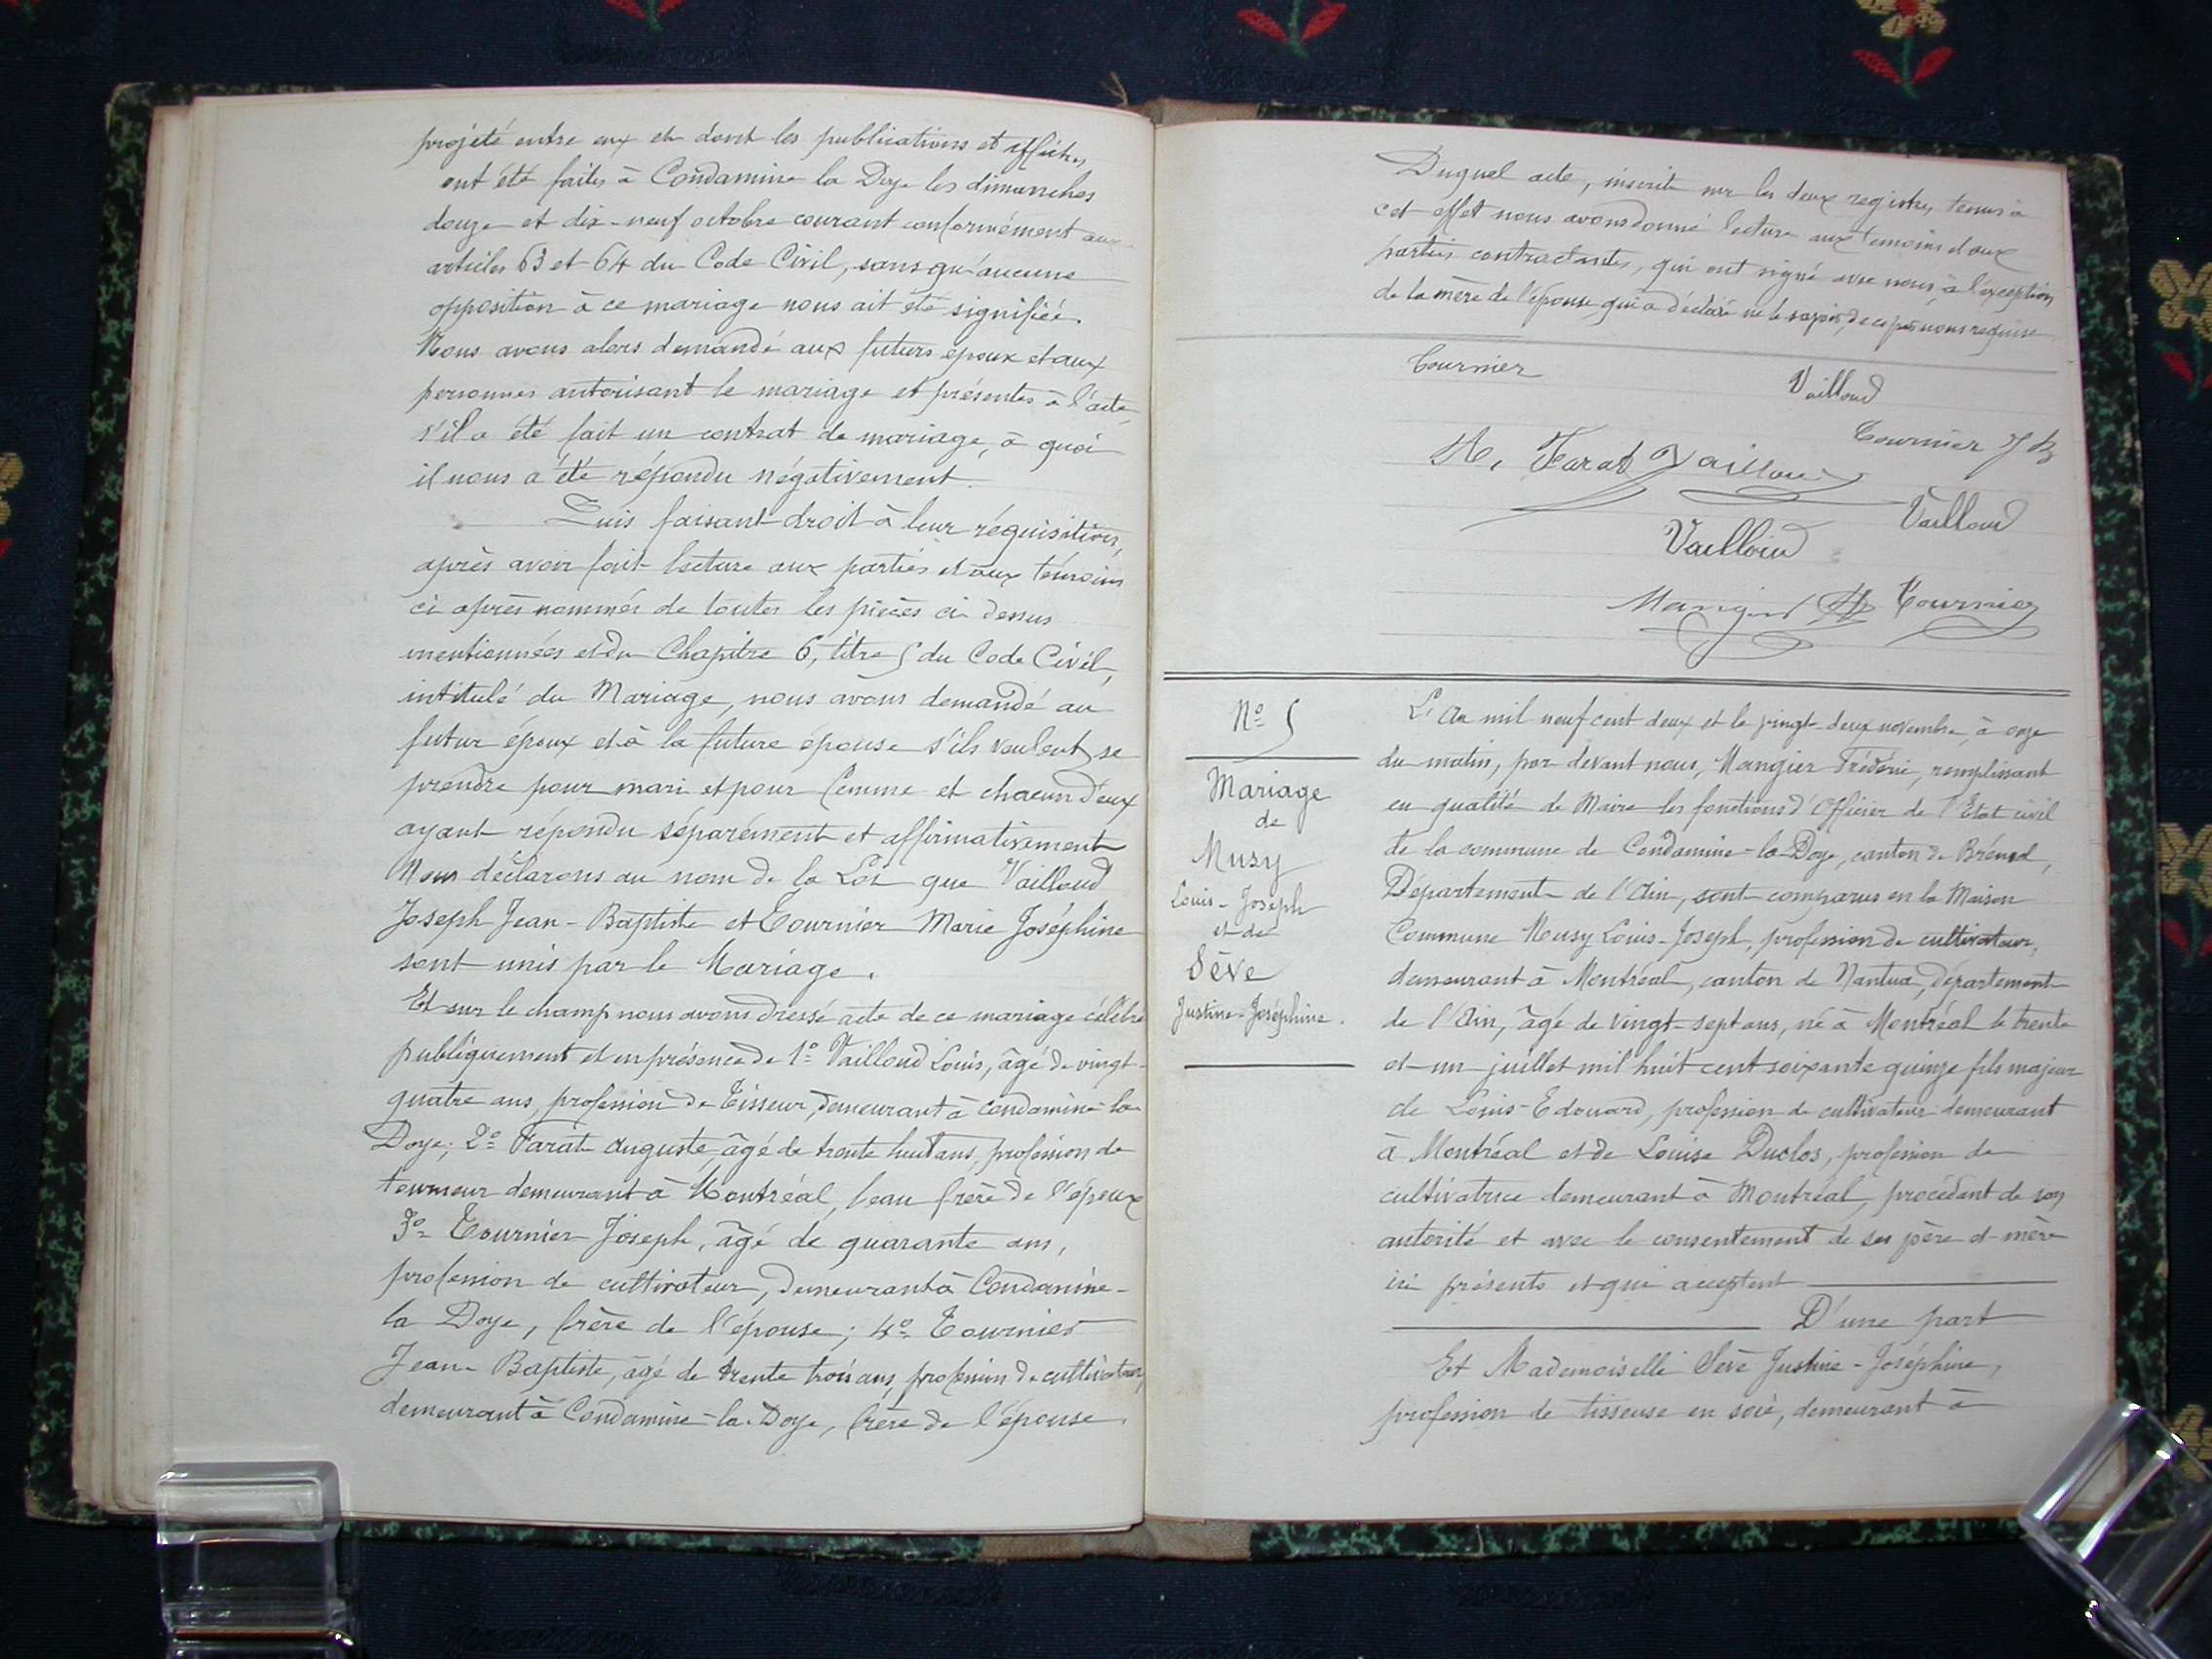 projeté entre eux et dont les publications et affiches
ont été faites à Condamine la Doye les dimanches
douze et dix-neuf octobre courant conformément aux
articles 63 et 64 du Code Civil, sans qu'aucune
opposition à ce mariage nous ait été signifiée.
Nous avons alors demandé aux futurs époux et aux
personnes autorisant le mariage et présentes à l'acte
s'il a été fait un contrat de mariage, à quoi
il nous a été répondu négativement.
Puis faisant droit à leur réquisition,
après avoir fait lecture aux parties et aux témoins
ci après nommés de toutes les pièces ci dessus
mentionnées et du Chapitre 6, titre 5 du Code Civil,
intitulé du Mariage, nous avons demandé au
futur époux et à la future épouse s'ils veulent se
prendre pour mari et pour femme et chacun d'eux
ayant répondu séparément et affirmativement
Nous déclarons au nom de la Loi que Vailloud
Joseph Jean-Baptiste et Tournier Marie Joséphine
sont unis par le Mariage.
Et sur le champ nous avons dressé acte de ce mariage célébré
publiquement et en présence de 1º Vailloud Louis, âgé de vingt-
quatre ans, profession de Tisseur, demeurant à Condamine-la-
Doye; 2º Farat Auguste, âgé de trente huit ans, profession de
tourneur demeurant à Montréal, beau frère de l'époux
3º Tournier Joseph, âgé de quarante ans,
profession de cultivateur, demeurant à Condamine-
la Doye, frère de l'épouse; 4º Tournier
Jean-Baptiste, âgé de trente trois ans, profession de cultivateur,
demeurant à Condamine-la-Doye, frère de l'épouse.
Duquel acte, inscrit sur les deux registres tenus à
cet effet nous avons donné lecture aux témoins et aux
parties contractantes, qui ont signé avec nous à l'exception
de la mère de l'épouse qui a déclaré ne le savoir, de ce par nous requise
Tournier
Vailloud
Tournier J B
A. Farat Vailloud
Vailloud
Vailloud
Mangier Tournier
Nº 5
Mariage
de
Musy
Louis-Joseph
et de
Sève
Justine-Joséphine.
L'An mil neuf cent deux et le vingt-deux novembre, à onze
du matin, par devant nous, Mangier Frédéric, remplissant
en qualité de Maire les fonctions d'Officier de l'Etat civil
de la commune de Condamine-la-Doye, canton de Brénod,
Département de l'Ain, sont comparus en la Maison
Commune Musy Louis-Joseph, profession de cultivateur,
demeurant à Montréal, canton de Nantua, département
de l'Ain, âgé de vingt-sept ans, né à Montréal le trente
et-un juillet mil huit cent soixante quinze fils majeur
de Louis-Edouard, profession de cultivateur demeurant
à Montréal et de Louise Duclos, profession de
cultivatrice demeurant à Montréal, procédant de son
autorité et avec le consentement de ses père et mère
ici présents et qui acceptent
D'une part
Et Mademoiselle Sève Justine-Joséphine,
profession de tisseuse en soie, demeurant à